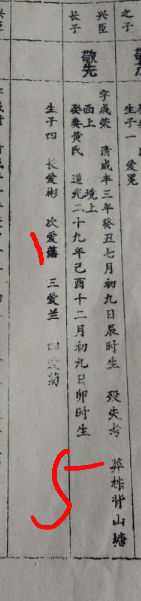 之子
生子一 爱冕
兴臣
长子
敬先
字成荣 清咸丰三年癸丑七月初九日辰时生 殁失考 葬株背山塘
娶黄氏 道光二十九年己酉十二月初九日卯时生
生子四 长爱彬 次爱藩 三爱兰 四爱菊
兴臣